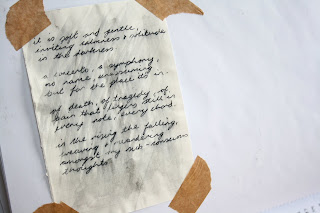 it is soft and gentle,
inviting calmness & solitude
in the darkness.
a concerto, a symphony,
no name, unassuming
but for the place it is.
of death, of tragedy, of
pain that lingers still in
every note, every chord.
in the rising the falling,
weaving & meandering
amongst my sub-conscious
thoughts